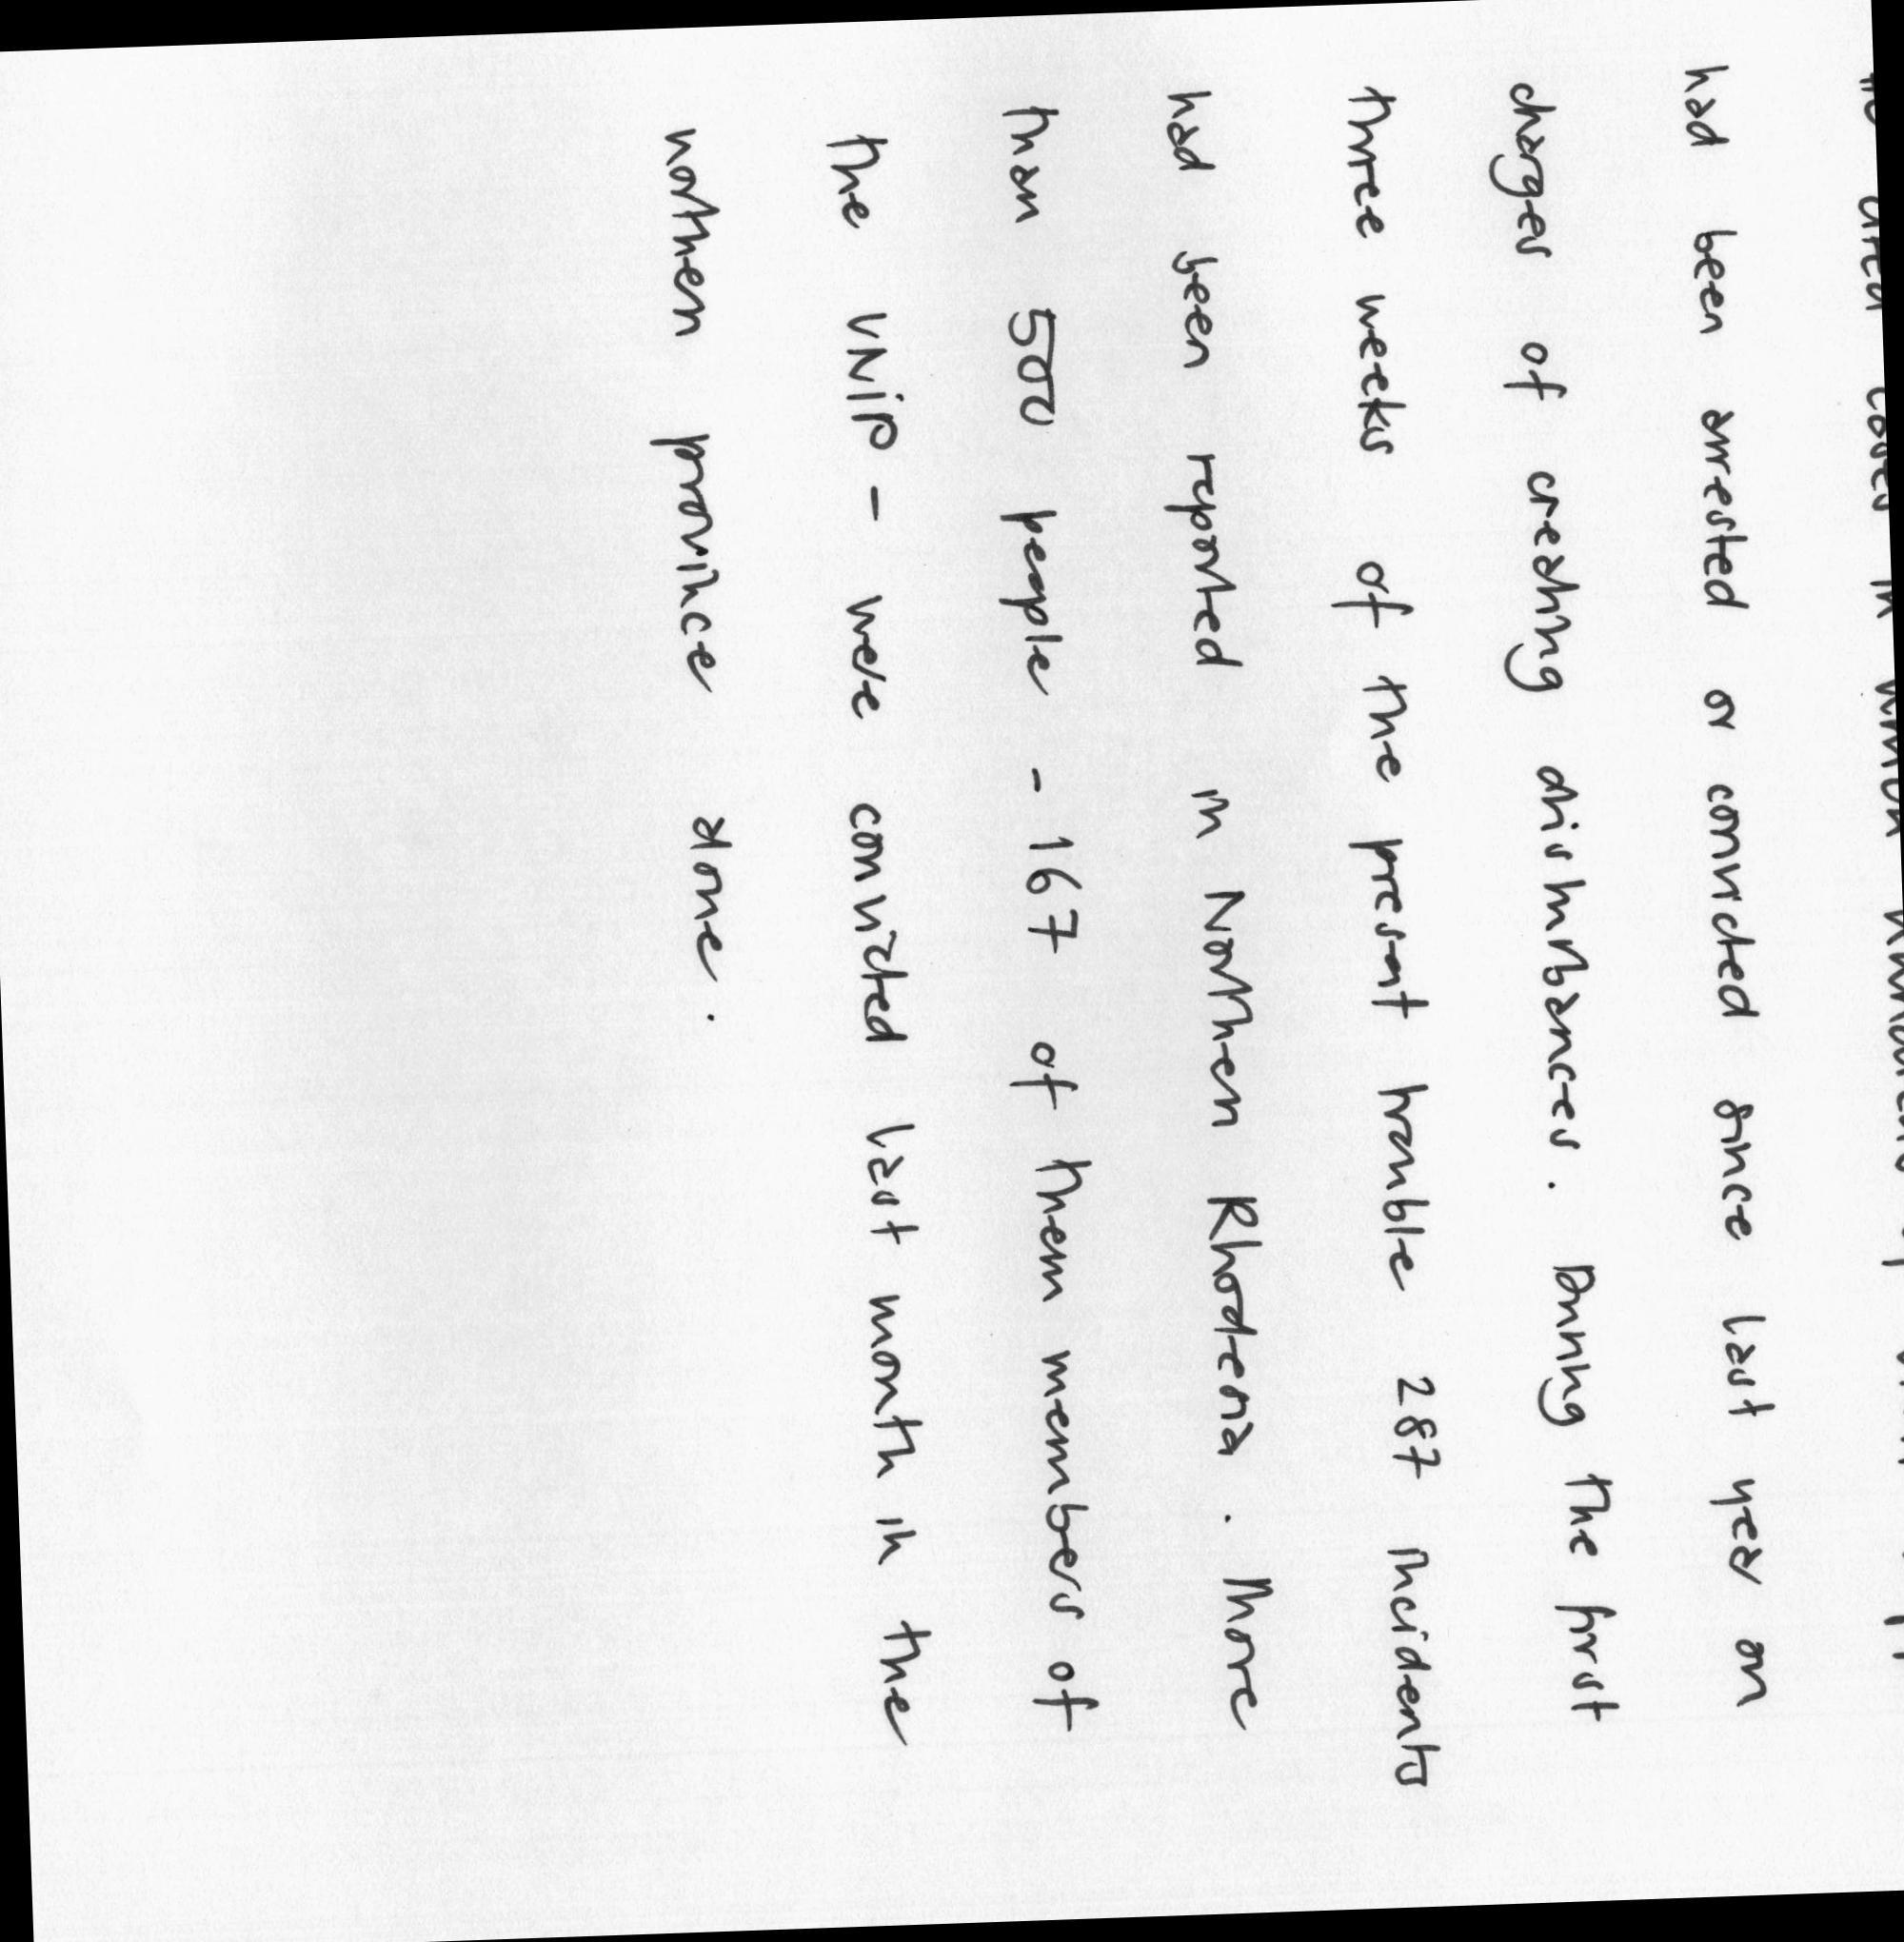 had been arrested or convicted since last year on
charges of creating disturbances. During the first
three weeks of the present trouble 287 incidents
had been reported in Northen Rhodesia. More
than 500 people - 167 of them members of
the UNIP - were convicted last month in the
northen province alone.